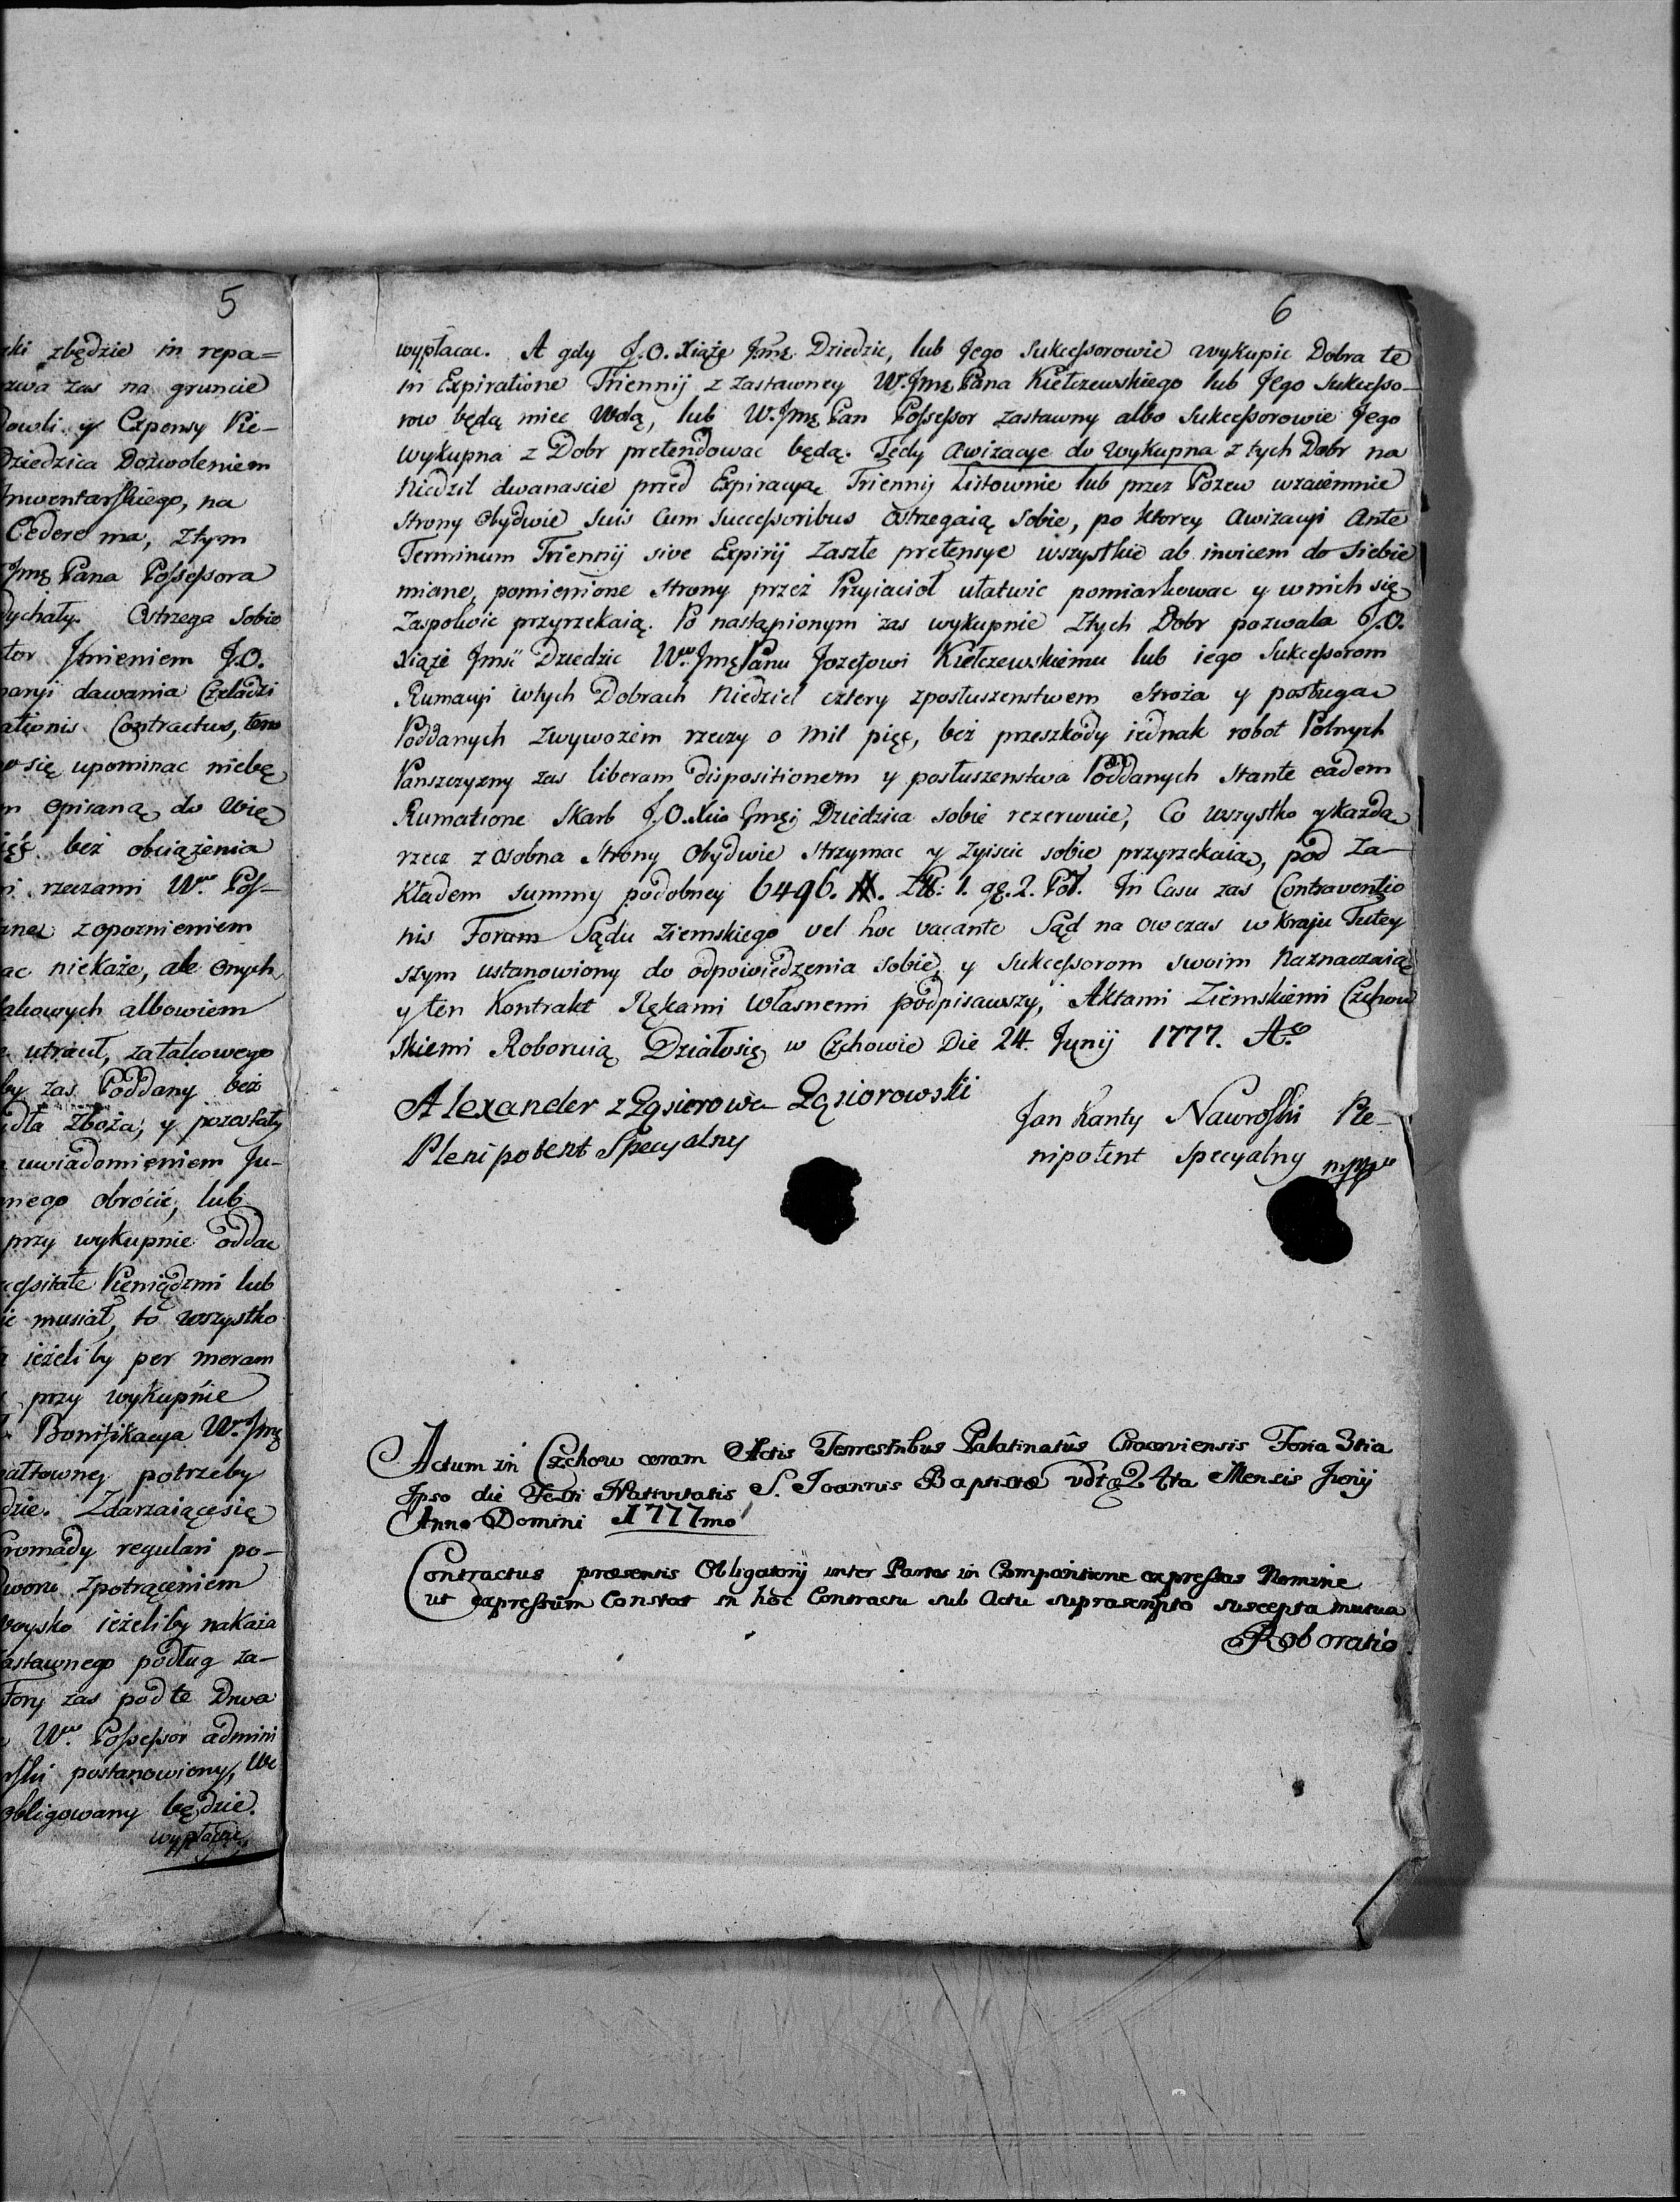 5
ki zbędzie in repa=
zwa zas na gruncie
owli y Expensy Pie-
Dziedzica Dozwoleniem
Inwentarskiego, na
Cedere ma, Ztym
Jmę Pana Possessora
dychały. Ostrzega sobie
tor Jmieniem J.O.
dawania Czeladzi
ationis Contractus, ten
się upominac niebę
opisaną do wię
bez obciążenia
rzeczami Wo. Pos-
z opoznieniem
ac niekaże, ale onych
takowych albowiem
utracił, zatakowego
by zas Poddany bez
dła Zboża, y pozostały
uwiadomieniem Ju-
nego obrócić, lub
przy wykupnie oddac
cessitate Pieniądzmi lub
musiał, to wszystko
ieżeli by per moram
przy wykupnie
Bonifikacya Wo. Jmę
gwałtowney potrzeby
dzie. Zdarzaiącesię
Gromady regulari po-
dworu zpotrąceniem
woysko ieżeli by nakaza
astawnego podług za-
Fory zas pod te Drwa
Wo. Possessor admini
postanowiony, we
obligowany będzie.
wypłacac
6
wypłacac. A gdy J.O. Xiąże Jmę Dziedzic, lub Jego Sukcessorowie wykupic Dobra te
in Expiratione Triennij z zastawney W. Jmę Pana Kiełczewskiego lub Jego Sukcesso-
row będą miec Wolą, lub W. Jmę Pan Possessor zastawny albo Sukcessorowie Jego
wykupna z Dobr pretendowac będą. Tedy awizacye do wykupna z tych Dobr na
Niedzil dwanascie przed Expiracyą Triennij Listownie lub przez Pozew wzaiemnie
Strony Obydwie suis cum successoribus Ostrzegaią sobie, po ktorey Awizacyi Ante
Terminum Triennij sive Expirij zaszłe pretensye wszystkie ab invicem do siebie
miane, pomienione strony przez Przyiacioł ułatwic pomiarkowac y w nich się
Zaspokoic przyrzekaią. Po nastąpionym zas wykupnie Ztych Dobr pozwala J.O.
Xiąże Jmć Dziedzic Wo. Jmę Panu Jozefowi Kiełczewskiemu lub iego Sukcessorom
Rumacyi wtych Dobrach Niedziel cztery zposłuszenstwem Stroża y posługac
Poddanych zwywozem rzeczy o mil pięc, bez przeszkody iednak robot Polnych
Panszczyzny zas liberam dispositionem y posłuszenstwa Poddanych stante eadem
Rumatione Skarb J.O. Xcia Jmęi Dziedzica sobie rezerwuie, Co wszystko y każdą
rzecz z osobna Strony Obydwie strzymac y ziscic sobie przyrzekaią, pod Za-
kładem summy podobney 6496. # Złł: 1. gę. 2. Poł. In Casu zas Contraventio
nis Forum Sądu Ziemskiego vel hoc vacante Sąd na ow czas w kraju Tutey
szym ustanowiony do odpowiedzenia sobie y Sukcessorom swoim Naznaczaią
y ten Kontrakt Rękami własnemi podpisawszy, Aktami Ziemskiemi Czchow
skiemi Roboruią Działosię w Czchowie Die 24. Junij 1777. Ao
Alexander z Gąsiorowa Gąsiorowski
Plenipotent Specyalny
Jan Kanty Nawroski Ple-
nipotent specyalny mppa
Actum in Czchow coram Actis Terrestribus Palatinatûs Cracoviensis Feria 3tia
Ipso die Festi Nativitatis S. Joannis Baptistæ vdtę 24ta Mensis Junij
Anno Domini 1777mo
Contractus præsentis Obligatorij inter Partes in Comparitione expressas Nomine
ut expressum Constat in hoc Contractu sub Actu suprascripto suscepta mutua
Roboratio